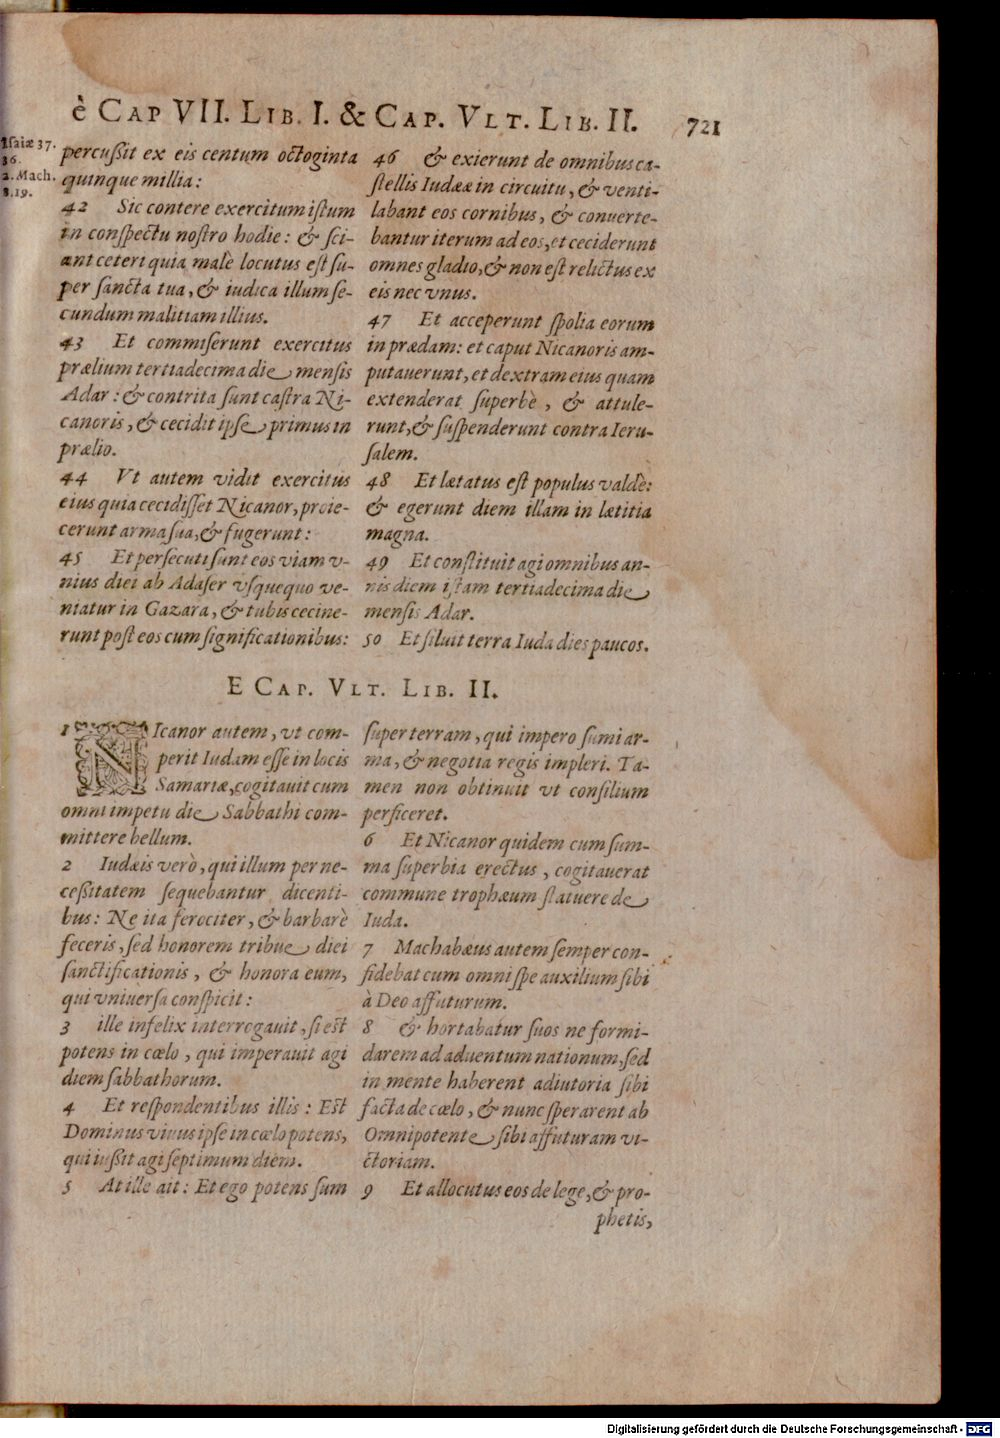 è CAP VII. LIB. I. & CAP. VLT. LIB. II. 721
Isaiæ 37.
36.
2. Mach.
8.19.
percußit ex eis centum octoginta
quinque millia:
42 Sic contere exercitum istum
in conspectu nostro hodie: & sci-
ant ceteri quia malè locutus est su-
per sancta tua, & iudica illum se-
cundum malitiam illius.
43 Et commiserunt exercitus
prælium tertiadecima die mensis
Adar: & contrita sunt castra Ni-
canoris, & cecidit ipse primus in
prælio.
44 Vt autem vidit exercitus
eius quia cecidisset Nicanor, proie-
cerunt arma sua, & fugerunt:
45 Et persecuti sunt eos viam v-
nius diei ab Adaser vsquequo ve-
niatur in Gazara, & tubis cecine-
runt post eos cum significationibus:
46 & exierunt de omnibus ca-
stellis Iudææ in circuitu, & venti-
labant eos cornibus, & conuerte-
bantur iterum ad eos, et ceciderunt
omnes gladio, & non est relictus ex
eis nec vnus.
47 Et acceperunt spolia eorum
in prædam: et caput Nicanoris am-
putauerunt, et dextram eius quam
extenderat superbè, & attule-
runt, & suspenderunt contra Ieru-
salem.
48 Et lætatus est populus valdè:
& egerunt diem illam in lætitia
magna.
49 Et constituit agi omnibus an-
nis diem istam tertiadecima die
mensis Adar.
50 Et siluit terra Iuda dies paucos.
E CAP. VLT. LIB. II.
1 NIcanor autem, vt com-
perit Iudam esse in locis
Samariæ, cogitauit cum
omni impetu die Sabbathi com-
mittere bellum.
2 Iudæis verò, qui illum per ne-
ceßitatem sequebantur dicenti-
bus: Ne ita ferociter, & barbarè
feceris, sed honorem tribue diei
sanctificationis, & honora eum,
qui vniuersa conspicit:
3 ille infelix interrogauit, si est
potens in cœlo, qui imperauit agi
diem sabbathorum.
4 Et respondentibus illis: Est
Dominus viuus ipse in cœlo potens,
qui iußit agi septimum diem.
5 At ille ait: Et ego potens sum
super terram, qui impero sumi ar-
ma, & negotia regis impleri. Ta-
men non obtinuit vt consilium
perficeret.
6 Et Nicanor quidem cum sum-
ma superbia erectus, cogitauerat
commune trophæum statuere de
Iuda.
7 Machabæus autem semper con-
fidebat cum omni spe auxilium sibi
à Deo affuturum.
8 & hortabatur suos ne formi-
darem ad aduentum nationum, sed
in mente haberent adiutoria sibi
facta de cœlo, & nunc sperarent ab
Omnipotente sibi affuturam vi-
ctoriam.
9 Et allocutus eos de lege, & pro-
phetis,
Digitalisierung gefördert durch die Deutsche Forschungsgemeinschaft - DFG